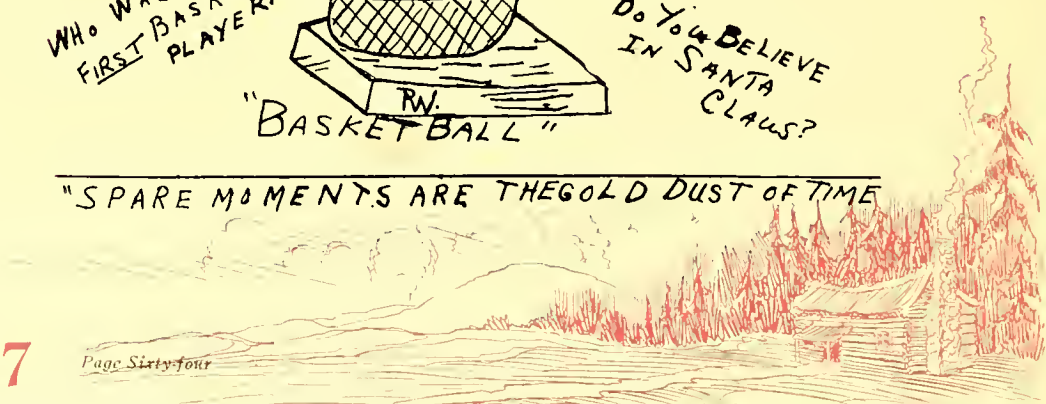 WHO WAS
FIRST BASK
PLAYER.
DO YOU BELIEVE
IN SANTA
CLAUS?
RW.
"BASKET BALL"
"SPARE MOMENTS ARE THE GOLD DUST OF TIME
7
Page Sixty-four